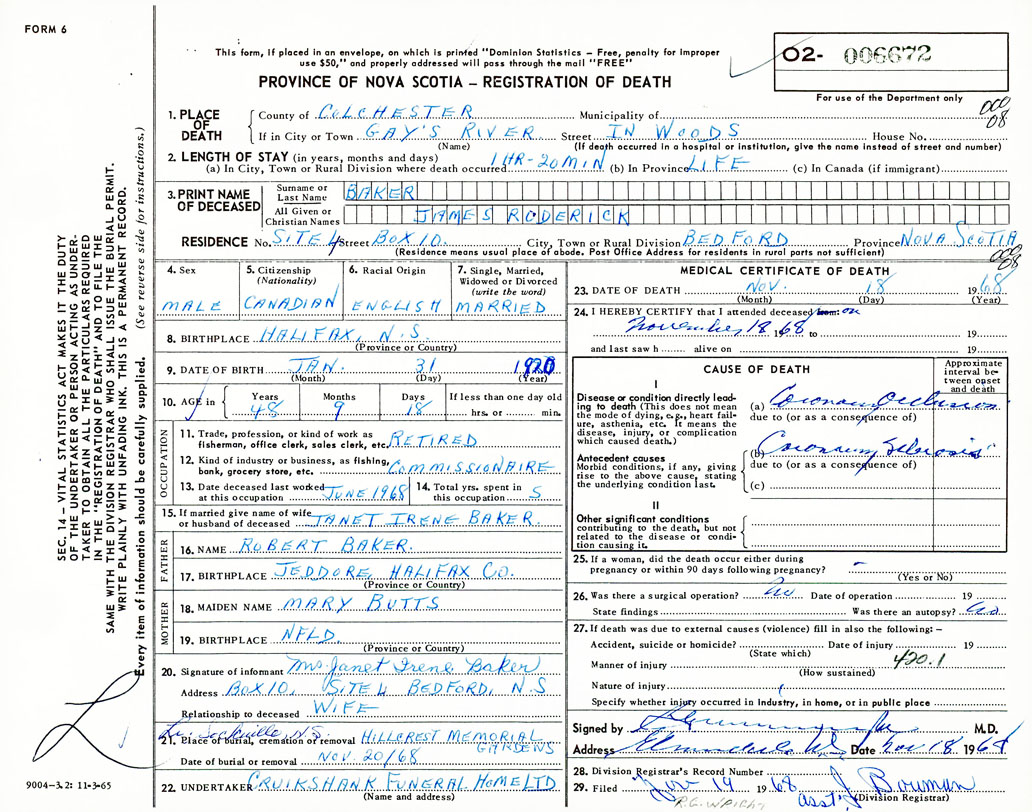 FORM 6
This form, if placed in an envelope, on which is printed "Dominion Statistics – Free, penalty for improper
use $50," and properly addressed will pass through the mail "FREE"
PROVINCE OF NOVA SCOTIA – REGISTRATION OF DEATH
O2- 006672
For use of the Department only
000
08
1. PLACE OF DEATH
County of COLCHESTER Municipality of
If in City or Town GAY'S RIVER Street IN WOODS House No.
(Name) (If death occurred in a hospital or institution, give the name instead of street and number)
2. LENGTH OF STAY (in years, months and days)
(a) In City, Town or Rural Division where death occurred 1 HR-20 MIN (b) In Province LIFE (c) In Canada (if immigrant)
3. PRINT NAME OF DECEASED
Surname or Last Name BAKER
All Given or Christian Names JAMES RODERICK
RESIDENCE No. SITE 4 Street BOX 10. City, Town or Rural Division BEDFORD Province NOVA SCOTIA
(Residence means usual place of abode. Post Office Address for residents in rural parts not sufficient)
008
08
4. Sex
MALE
5. Citizenship
(Nationality)
CANADIAN
6. Racial Origin
ENGLISH
7. Single, Married,
Widowed or Divorced
(write the word)
MARRIED
8. BIRTHPLACE HALIFAX, N.S.
(Province or Country)
9. DATE OF BIRTH JAN. 31 1920
(Month) (Day) (Year)
10. AGE in
Years Months Days If less than one day old
48 9 18 hrs. or min.
OCCUPATION
11. Trade, profession, or kind of work as
fisherman, office clerk, sales clerk, etc. RETIRED
12. Kind of industry or business, as fishing,
bank, grocery store, etc. COMMISSIONAIRE
13. Date deceased last worked
at this occupation JUNE 1968
14. Total yrs. spent in
this occupation 5
15. If married give name of wife
or husband of deceased JANET IRENE BAKER.
FATHER
16. NAME ROBERT BAKER.
17. BIRTHPLACE JEDDORE, HALIFAX CO.
(Province or Country)
MOTHER
18. MAIDEN NAME MARY BUTTS
19. BIRTHPLACE NFLD.
(Province or Country)
20. Signature of informant Mrs. Janet Irene Baker
Address BOX 10, SITE 4 BEDFORD, N.S
Relationship to deceased WIFE
Sackville, N.S.
21. Place of burial, cremation or removal HILLCREST MEMORIAL
GARDENS
Date of burial or removal NOV. 20/68
22. UNDERTAKER CRUIKSHANK FUNERAL HOME LTD
(Name and address)
MEDICAL CERTIFICATE OF DEATH
23. DATE OF DEATH NOV. 18 1968
(Month) (Day) (Year)
24. I HEREBY CERTIFY that I attended deceased from: on
November 18 1968 to 19
and last saw h alive on 19
CAUSE OF DEATH
Approximate
interval be-
tween onset
and death
I
Disease or condition directly lead-
ing to death (This does not mean
the mode of dying, e.g., heart fail-
ure, asthenia, etc. It means the
disease, injury, or complication
which caused death.)
(a) Coronary Occlusion
due to (or as a consequence of)
Antecedent causes
Morbid conditions, if any, giving
rise to the above cause, stating
the underlying condition last.
(b) Coronary Sclerosis
due to (or as a consequence of)
(c)
II
Other significant conditions
contributing to the death, but not
related to the disease or condi-
tion causing it.
25. If a woman, did the death occur either during
pregnancy or within 90 days following pregnancy? –
(Yes or No)
26. Was there a surgical operation? No Date of operation 19
State findings Was there an autopsy? No
27. If death was due to external causes (violence) fill in also the following: –
Accident, suicide or homicide? Date of injury 19
(State which)
420.1
Manner of injury
(How sustained)
Nature of injury
Specify whether injury occurred in Industry, in home, or in public place
Signed by M.D.
Address Date Nov 18 1968
28. Division Registrar's Record Number
29. Filed Nov 19 1968 J Bowman
asst. (Division Registrar)
R.G. WRIGHT
SEC. 14 – VITAL STATISTICS ACT MAKES IT THE DUTY
OF THE UNDERTAKER OR PERSON ACTING AS UNDER-
TAKER TO OBTAIN ALL THE PARTICULARS REQUIRED
IN THE "REGISTRATION OF DEATH" AND TO FILE THE
SAME WITH THE DIVISION REGISTRAR WHO SHALL ISSUE THE BURIAL PERMIT.
WRITE PLAINLY WITH UNFADING INK. THIS IS A PERMANENT RECORD.
Every item of information should be carefully supplied. (See reverse side for instructions.)
9004-3.2: 11-3-65